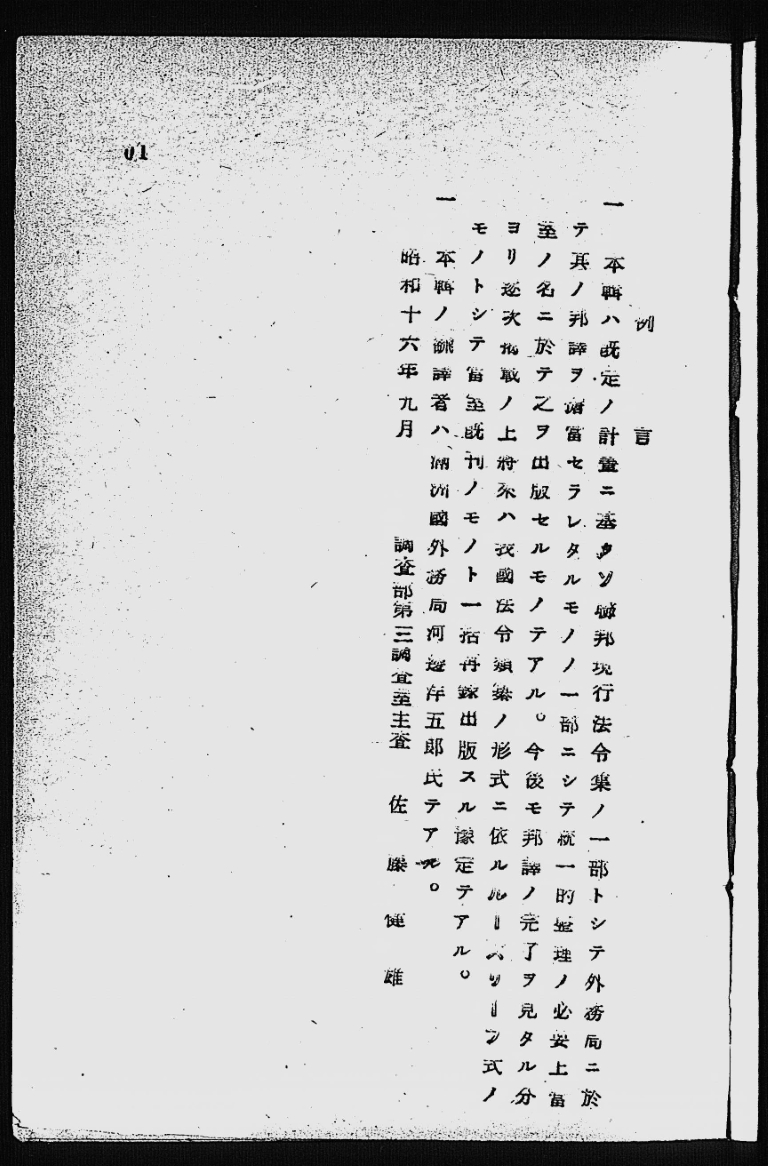 例言
一 本輯ハ既定ノ計畫ニ基キソ聯邦現行法令集ノ一部トシテ外務局ニ於
テ其ノ邦譯ヲ擔當セラレタルモノノ一部ニシテ統一的整理ノ必要上當
室ノ名ニ於テ之ヲ出版セルモノテアル。今後モ邦譯ノ完了ヲ見タル分
ヨリ逐次揭載ノ上將來ハ我國法令類集ノ形式ニ依ルルーズリーフ式ノ
モノトシテ當室既刊ノモノト一括再錄出版スル豫定テアル。
一 本輯ノ飜譯者ハ滿洲國外務局河邊洋五郎氏テアル。
昭和十六年九月
調査部第三調査室主査 佐藤健雄
01